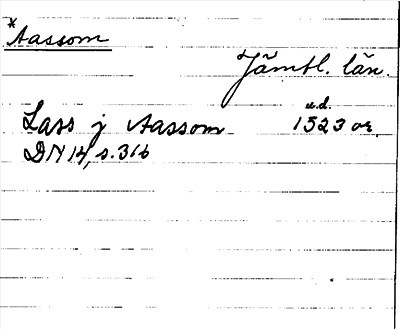 *Aassom
Jämtl. län.
Lass j Aassom u.d. 1523 or.
DN 14, s. 316